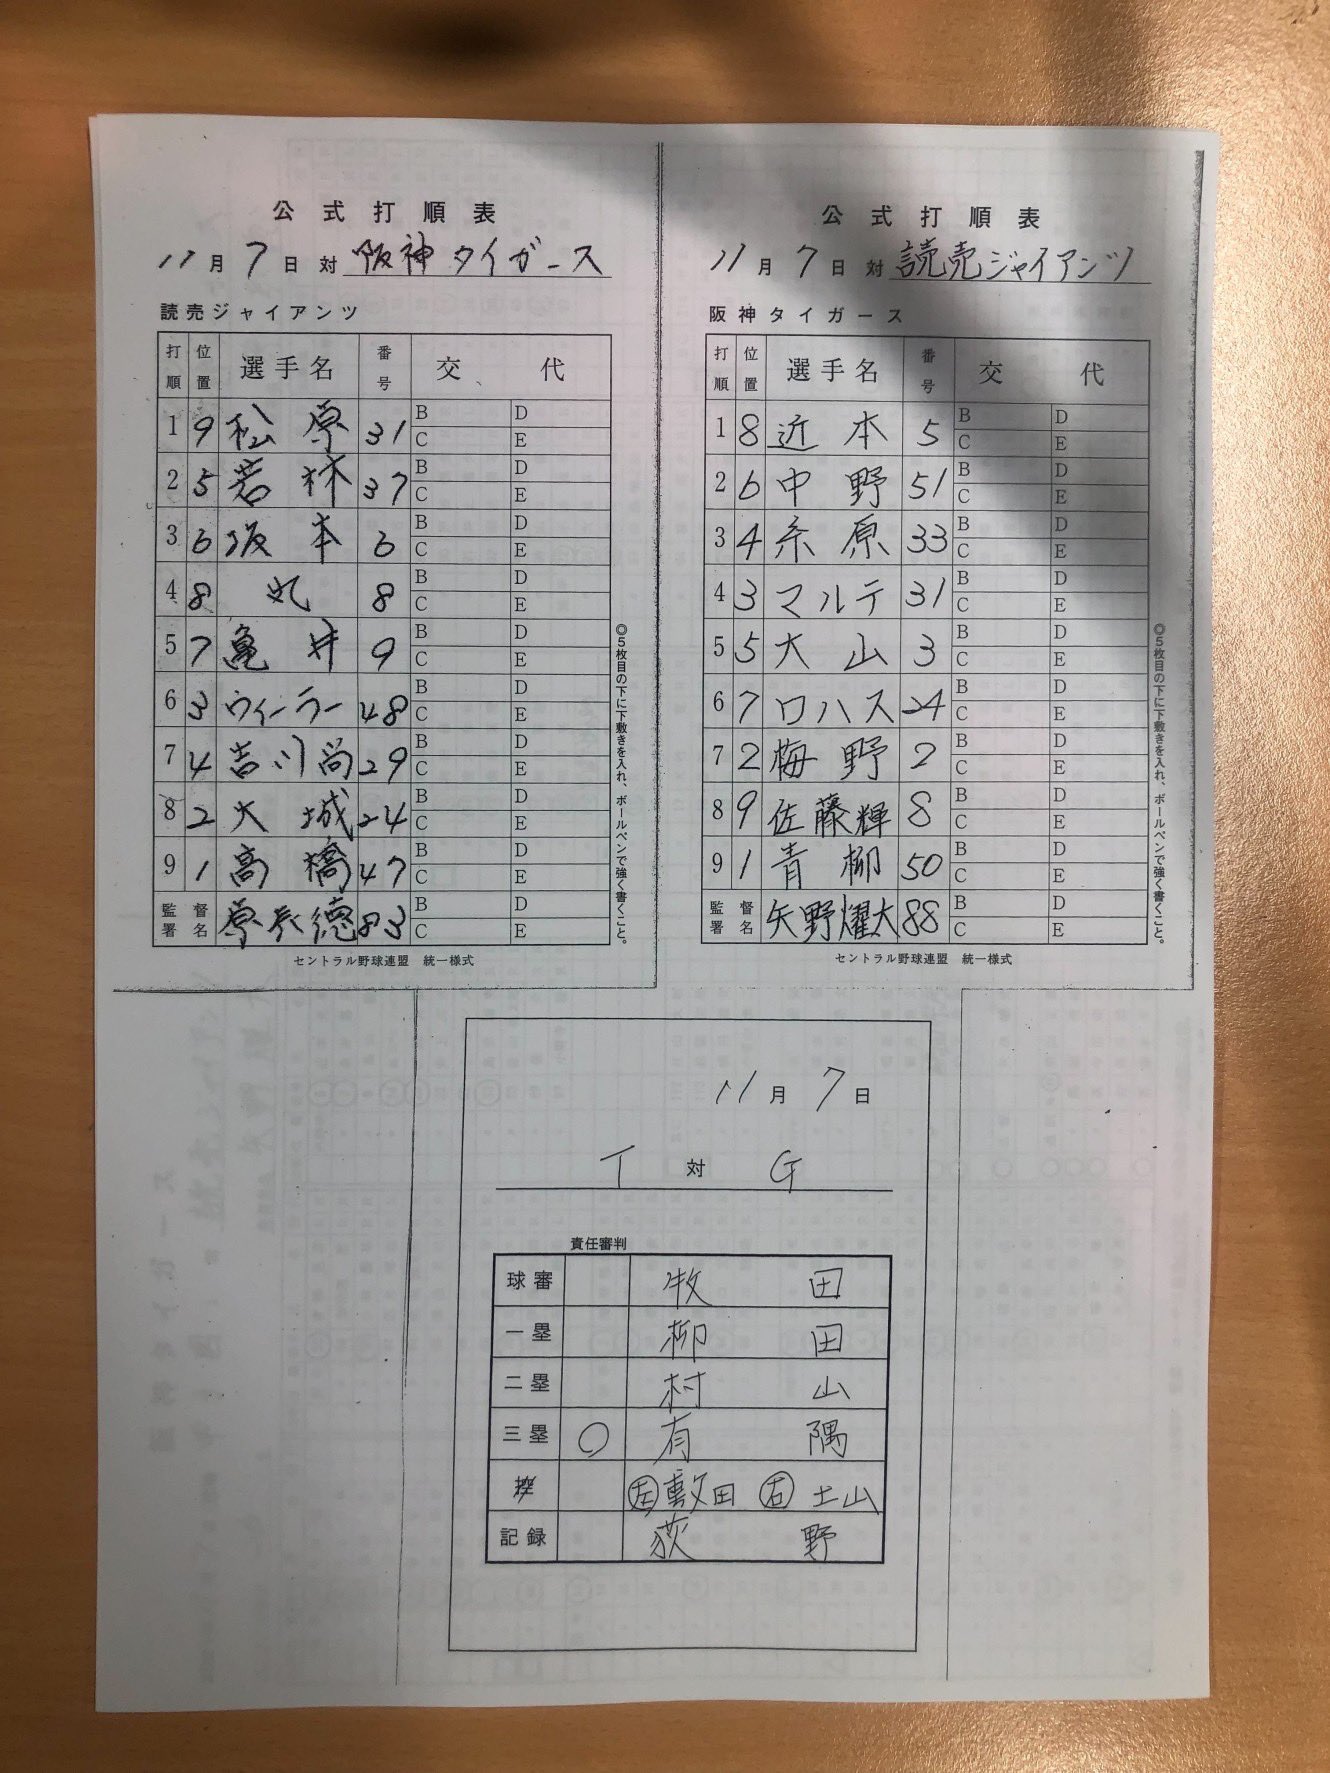 公式打順表
11月7日 対 阪神タイガース
読売ジャイアンツ
打順 位置 選手名 番号 交代
1 9 松原 31 B D C E
2 5 若林 37 B D C E
3 6 坂本 6 B D C E
4 8 丸 8 B D C E
5 7 亀井 9 B D C E
6 3 ウィーラー 48 B D C E
7 4 吉川尚 29 B D C E
8 2 大城 24 B D C E
9 1 高橋 47 B D C E
監督署名 原辰徳 83 B D C E
◎5枚目の下に下敷きを入れ、ボールペンで強く書くこと。
セントラル野球連盟 統一様式
公式打順表
11月7日 対 読売ジャイアンツ
阪神タイガース
打順 位置 選手名 番号 交代
1 8 近本 5 B D C E
2 6 中野 51 B D C E
3 4 糸原 33 B D C E
4 3 マルテ 31 B D C E
5 5 大山 3 B D C E
6 7 ロハス 24 B D C E
7 2 梅野 2 B D C E
8 9 佐藤輝 8 B D C E
9 1 青柳 50 B D C E
監督署名 矢野燿大 88 B D C E
◎5枚目の下に下敷きを入れ、ボールペンで強く書くこと。
セントラル野球連盟 統一様式
11月7日
T 対 G
責任審判
球審 牧田
一塁 柳田
二塁 村山
三塁 ○ 有隅
控 左 敷田 右 土山
記録 荻野